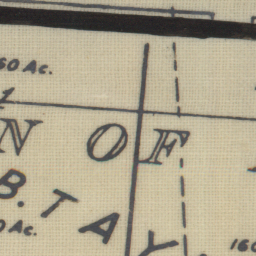 60 Ac.
1
N OF
B. TAY
0 Ac.
160